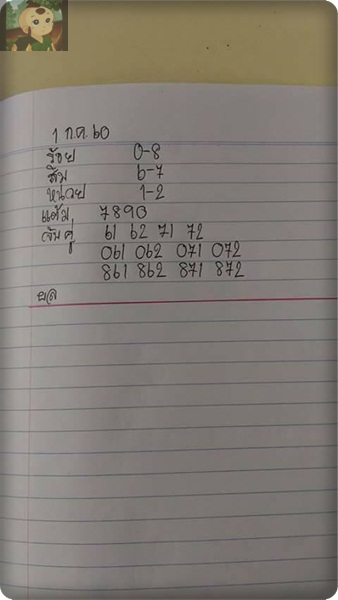 1 ก.ค. 60
ร้อย 0-8
สิบ 6-7
หน่วย 1-2
แต้ม 7890
เจ้นคู่ 61 62 71 72
061 062 071 072
861 862 871 872
ผล